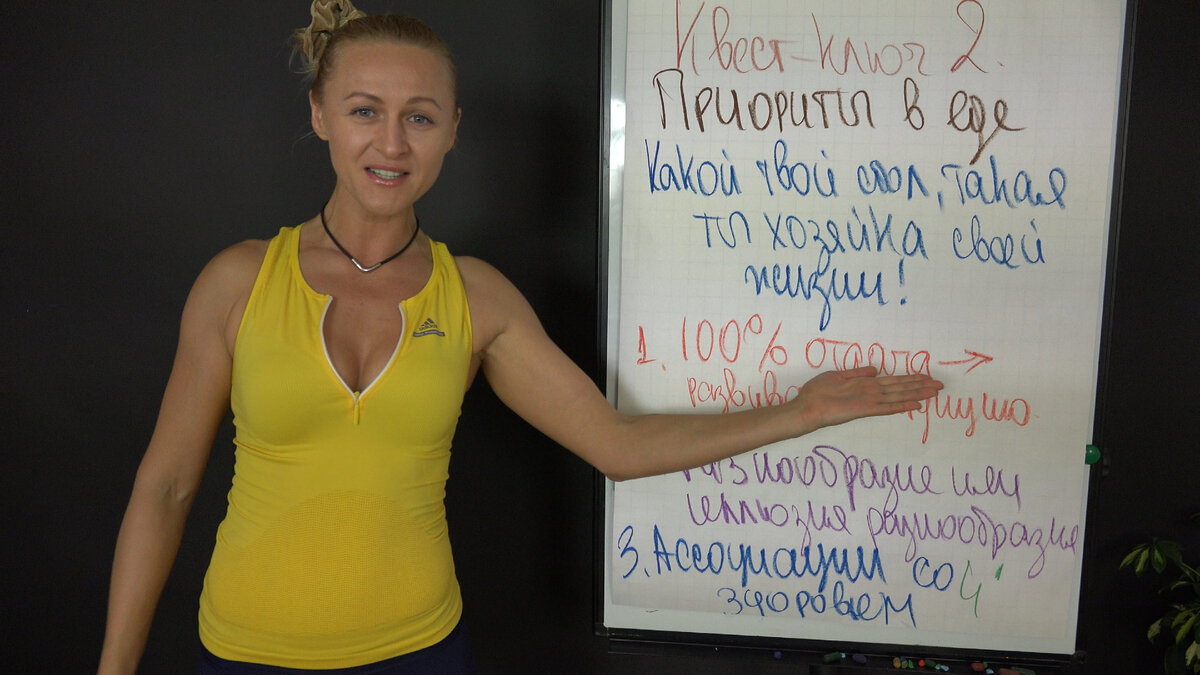 Квест-ключ 2.
Приориты в еде
Какой твой стол, такая
ты хозяйка своей
жизни!
1. 100% отдача →
разнообразие или
иллюзия разнообразия
3. Ассоциации со
здоровьем
adidas